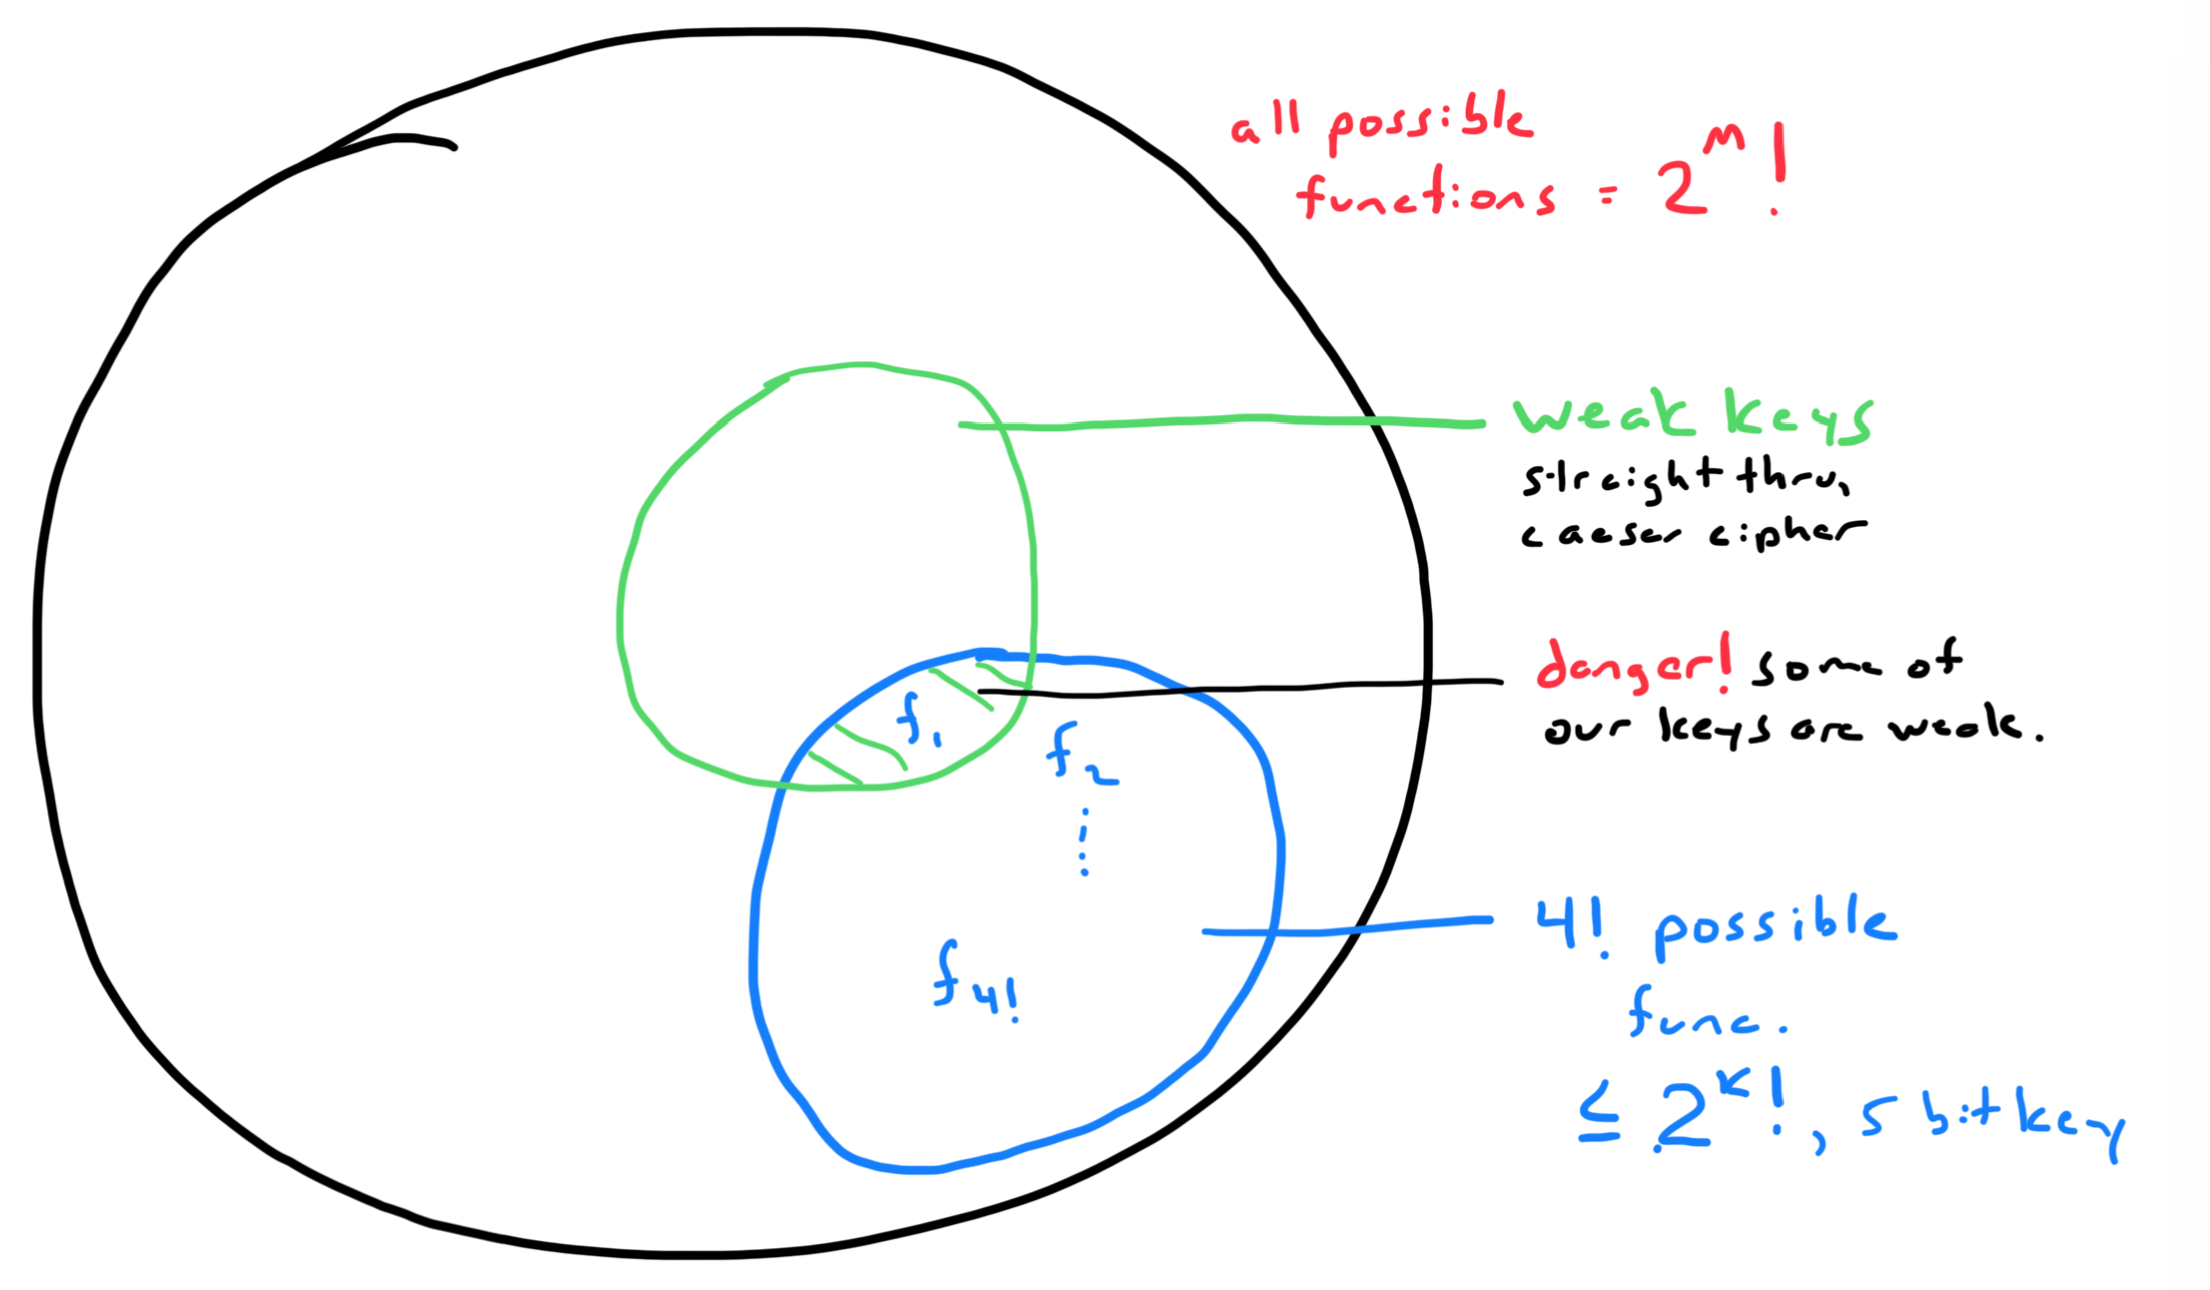 all possible
functions = 2^M!
weak keys
straight thru,
caeser cipher
danger! some of
our keys are weak.
f₁
f₂
⋮
f₄!
4! possible
func.
≤ 2^K!, 5 bit key